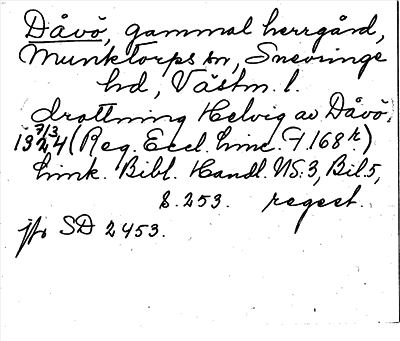 Dåvö, gammal herrgård,
Munktorps sn, Snevringe
hd, Västm. l.
drottning Helvig av Dåvö,
7/3
1324 (Reg. Eccl. Linc. f. 168 r)
Link. Bibl. Handl. NS:3, Bil. 5,
S. 253. regest.
jfr SD 2453.